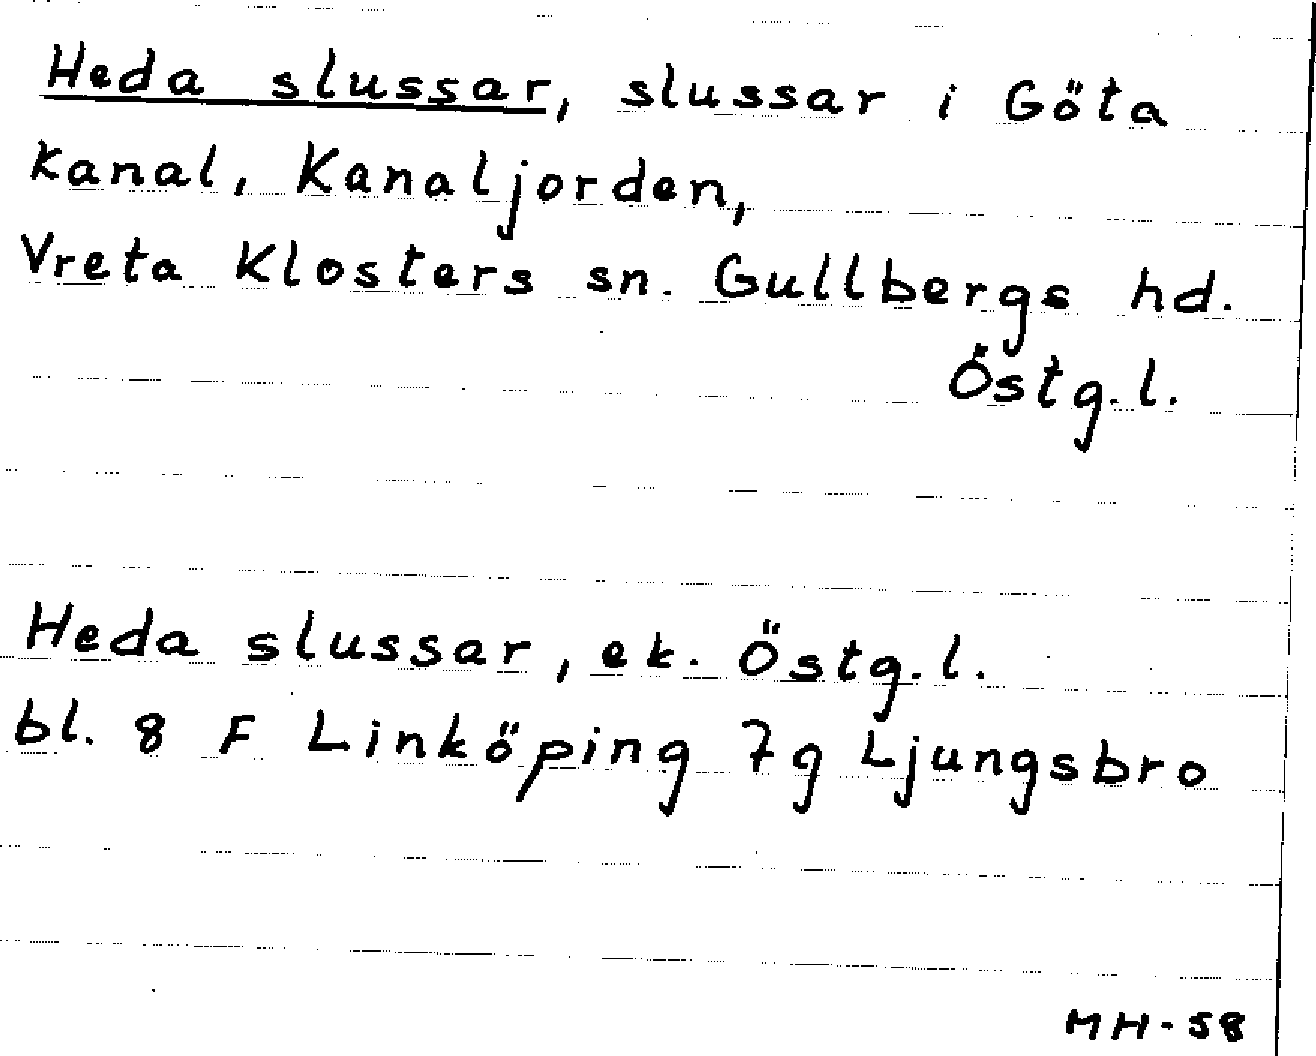 Heda slussar, slussar i Göta
kanal, Kanaljorden,
Vreta Klosters sn. Gullbergs hd.
Östg.l.
Heda slussar, ek. Östg.l.
bl. 8 F Linköping 7g Ljungsbro
MH-58